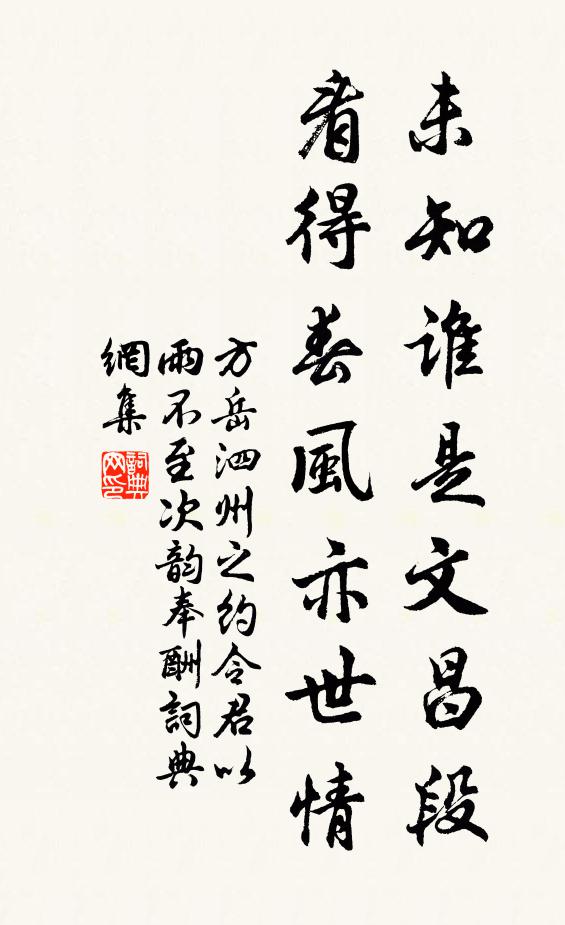 未知誰是文昌段
看得春風亦世情
方岳泗州之約令君以
雨不至次韵奉酬詞典
網集
詞典網印